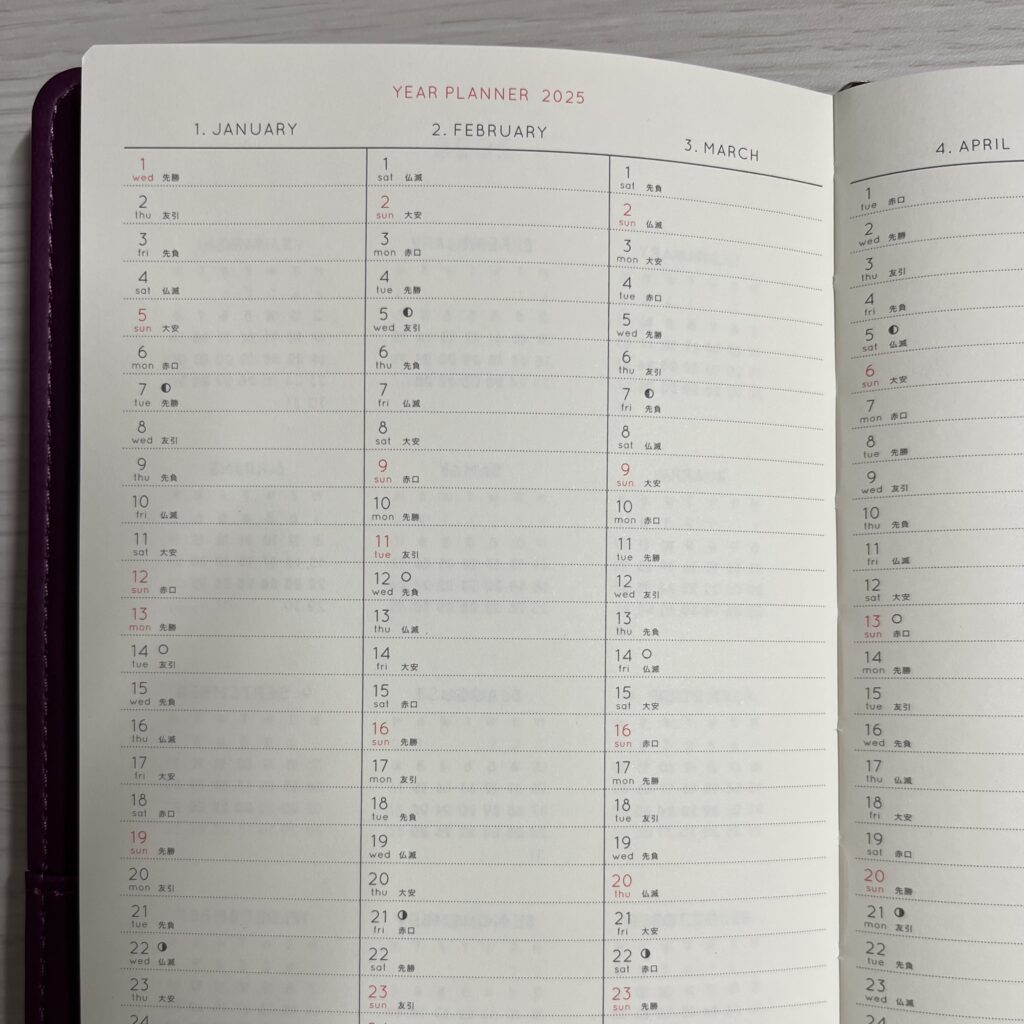 YEAR PLANNER 2025
1. JANUARY
1
wed 先勝
2
thu 友引
3
fri 先負
4
sat 仏滅
5
sun 大安
6
mon 赤口
7
tue 先勝
8
wed 友引
9
thu 先負
10
fri 仏滅
11
sat 大安
12
sun 赤口
13
mon 先勝
14
tue 友引
15
wed 先負
16
thu 仏滅
17
fri 大安
18
sat 赤口
19
sun 先勝
20
mon 友引
21
tue 先負
22
wed 仏滅
23
thu 大安
24
2. FEBRUARY
1
sat 仏滅
2
sun 大安
3
mon 赤口
4
tue 先勝
5
wed 友引
6
thu 先負
7
fri 仏滅
8
sat 大安
9
sun 赤口
10
mon 先勝
11
tue 友引
12
wed 先負
13
thu 仏滅
14
fri 大安
15
sat 赤口
16
sun 先勝
17
mon 友引
18
tue 先負
19
wed 仏滅
20
thu 大安
21
fri 赤口
22
sat 先勝
23
sun 友引
3. MARCH
1
sat 先負
2
sun 仏滅
3
mon 大安
4
tue 赤口
5
wed 先勝
6
thu 友引
7
fri 先負
8
sat 仏滅
9
sun 大安
10
mon 赤口
11
tue 先勝
12
wed 友引
13
thu 先負
14
fri 仏滅
15
sat 大安
16
sun 赤口
17
mon 先勝
18
tue 友引
19
wed 先負
20
thu 仏滅
21
fri 大安
22
sat 赤口
23
sun 先勝
4. APRIL
1
tue 赤口
2
wed 先勝
3
thu 友引
4
fri 先負
5
sat 仏滅
6
sun 大安
7
mon 赤口
8
tue 先勝
9
wed 友引
10
thu 先負
11
fri 仏滅
12
sat 大安
13
sun 赤口
14
mon 先勝
15
tue 友引
16
wed 先負
17
thu 仏滅
18
fri 大安
19
sat 赤口
20
sun 先勝
21
mon 友引
22
tue 先負
23
wed 仏滅
24